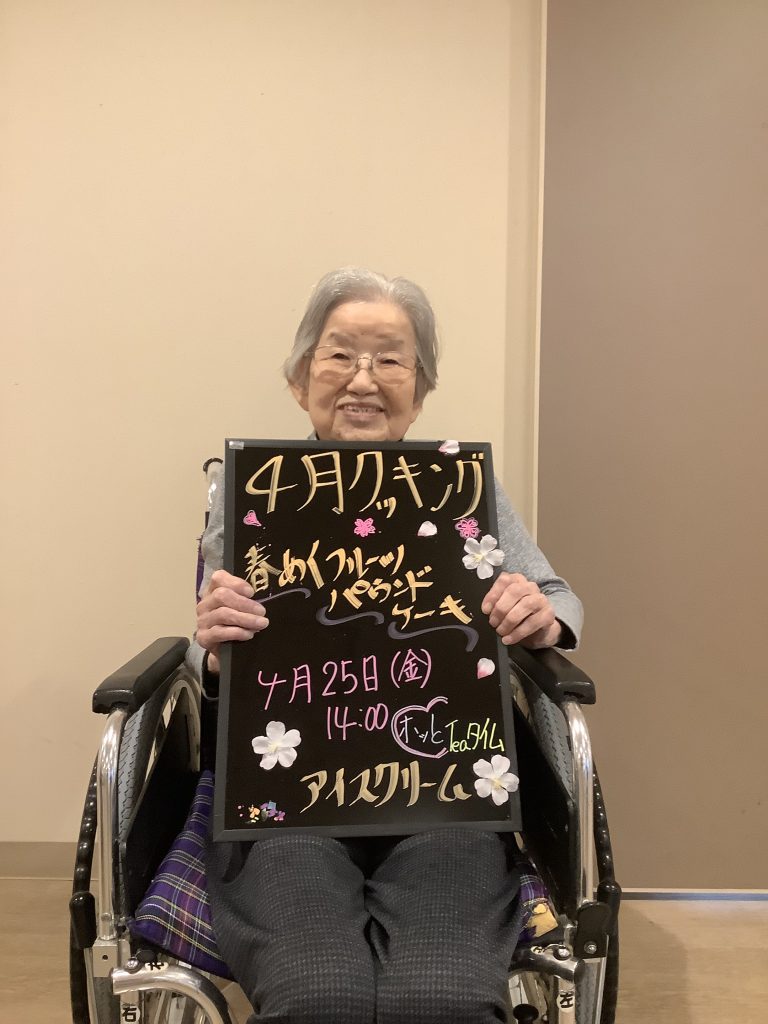 4月クッキング
春めくフルーツ
パウンド
ケーキ
4月25日(金)
14:00 ホッと Teaタイム
アイスクリーム
右
左